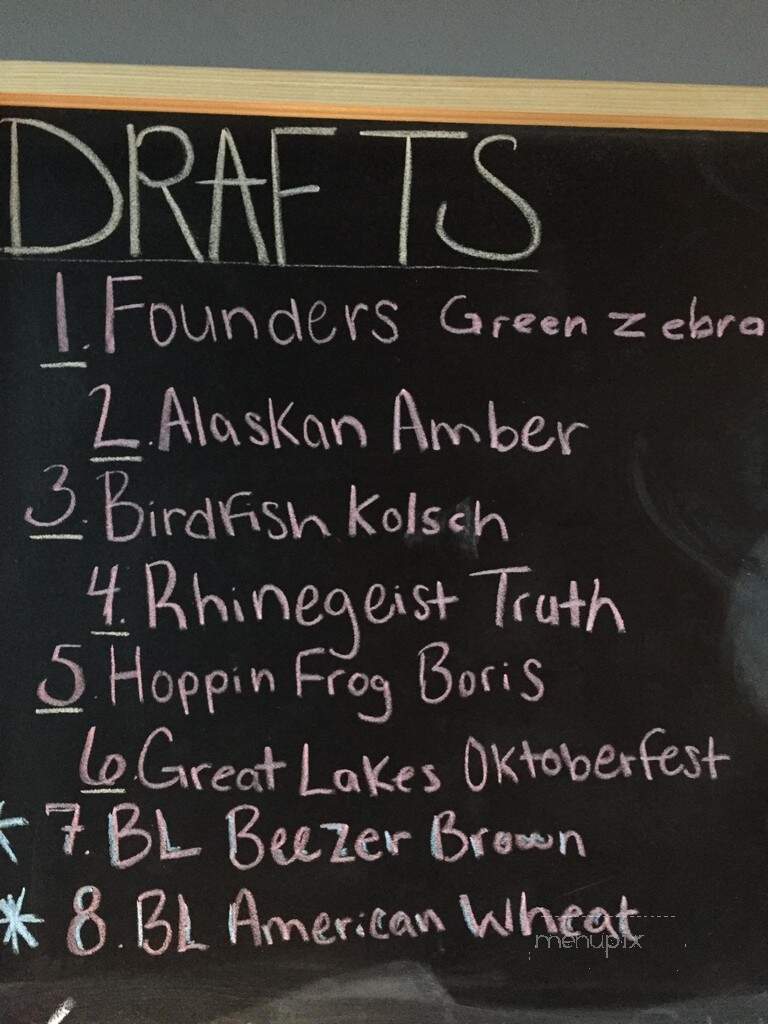 DRAFTS
1. Founders Green Zebra
2. Alaskan Amber
3. Birdfish Kolsch
4. Rhinegeist Truth
5. Hoppin Frog Boris
6. Great Lakes Oktoberfest
* 7. BL Beezer Brown
* 8. BL American Wheat
menupix